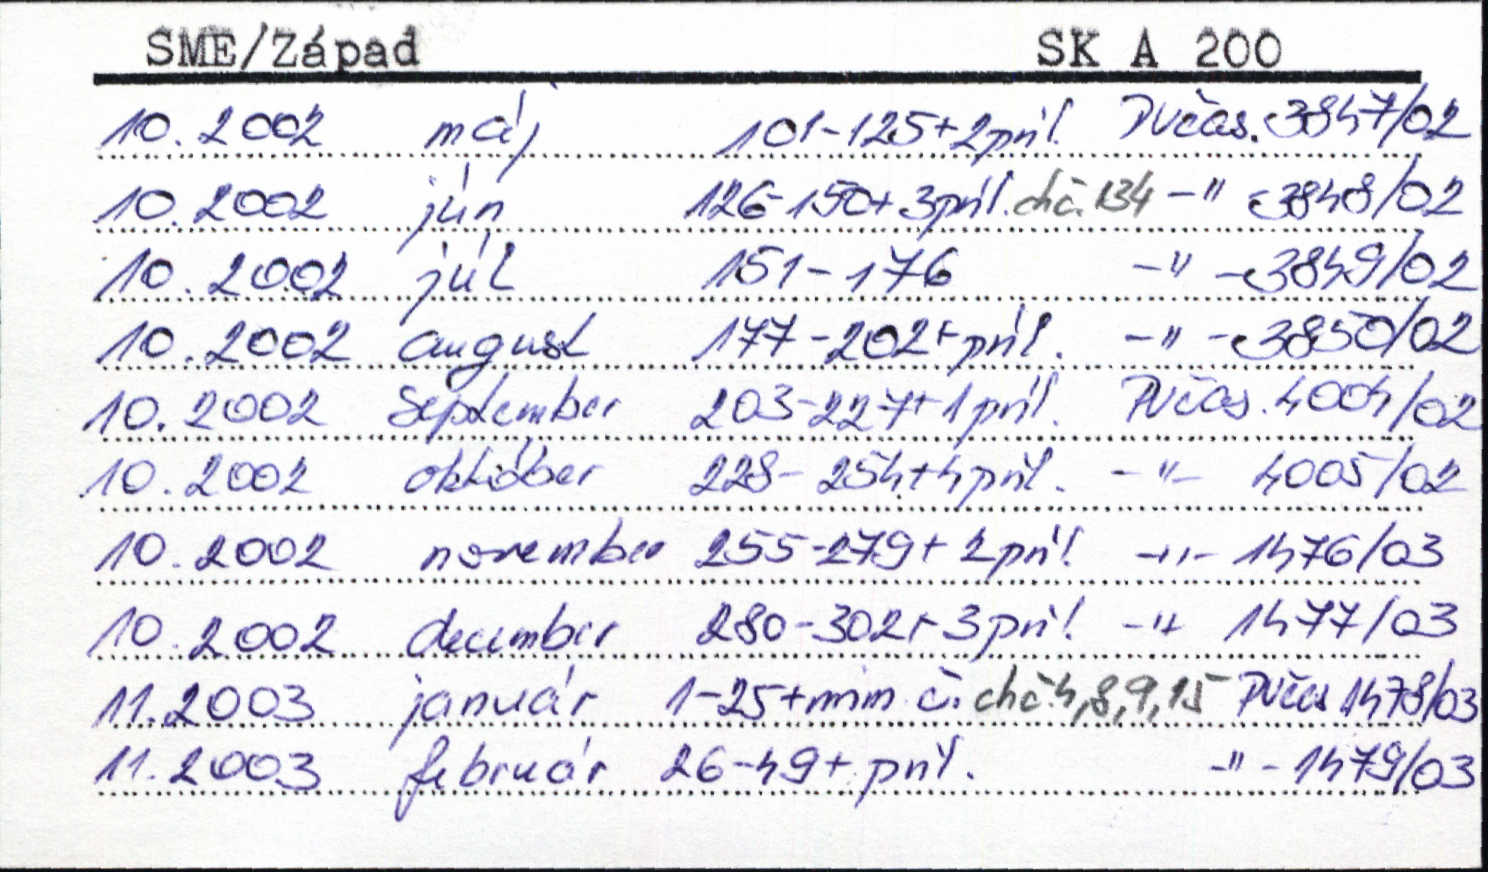 SME/Západ SK A 200
10.2002 máj 101-125+2príl. PVčas. 3847/02
10.2002 jún 126-150+3príl. chč. 134 -"- 3848/02
10.2002 júl 151-176 -"- 3849/02
10.2002 august 177-202+príl. -"- 3850/02
10.2002 September 203-227+1príl. PVčas. 4004/02
10.2002 október 228-254+4príl. -"- 4005/02
10.2002 november 255-279+2príl -"- 1476/03
10.2002 december 280-302+3príl -"- 1477/03
11.2003 január 1-25+mim. č. chč 4,8,9,15 PVčas 1478/03
11.2003 február 26-49+príl. -"- 1479/03